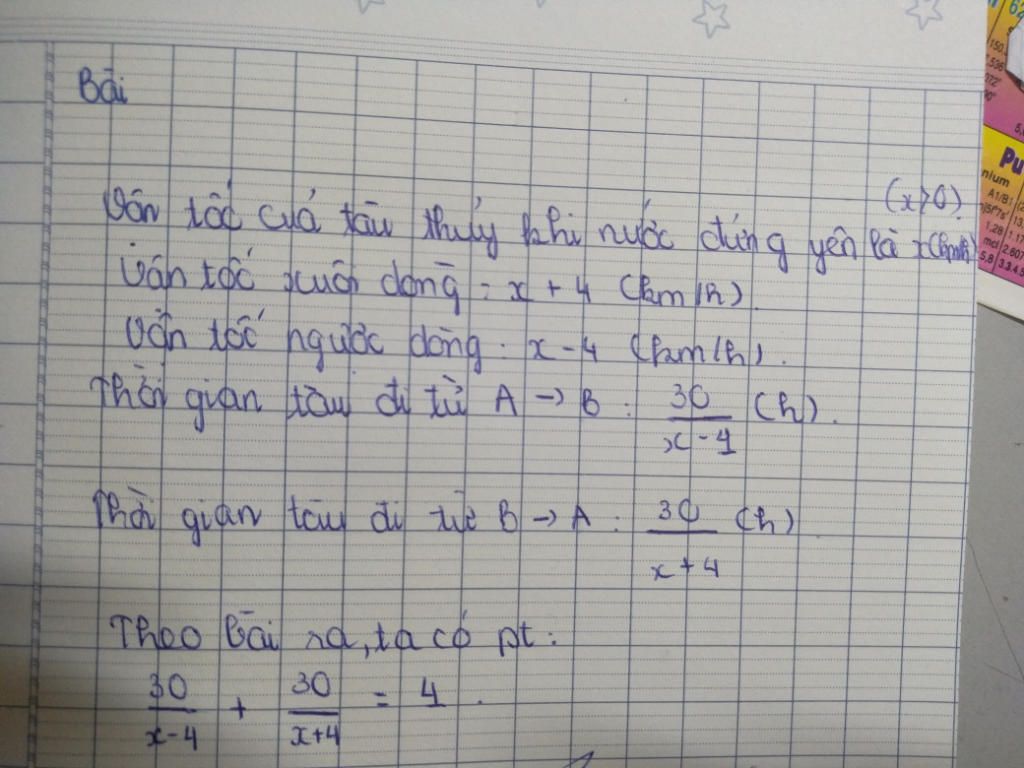 Bài
(x>0)
Vận tốc của tàu thủy khi nước đứng yên là x(km/h)
Vận tốc xuôi dòng : x + 4 (km/h).
Vận tốc ngược dòng : x - 4 (km/h).
Thời gian tàu đi từ A → B : 30/(x-4) (h).
Thời gian tàu đi từ B → A : 30/(x+4) (h)
Theo bài ra, ta có pt :
30/(x-4) + 30/(x+4) = 4 .
62
150.
.536
072°
90°
Pu
nium
A1/B1
1,28
1,17
mcl
2.607
5,8
3.3.4.5